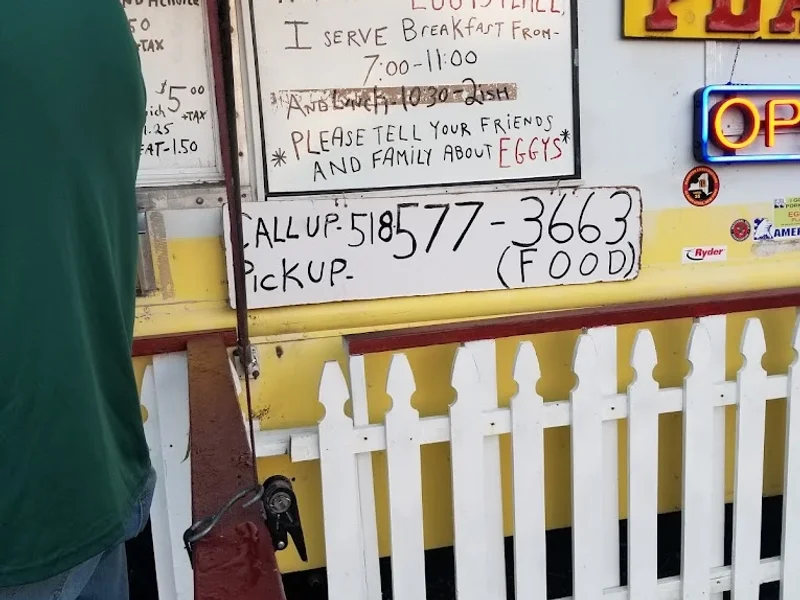 +TAX
$5.00
+TAX
1.25
EAT-1.50
EGGYS PLACE,
I SERVE BREAKFAST FROM-
7:00-11:00
AND Lunch, 10:30-2ISH
*PLEASE TELL YOUR FRIENDS*
AND FAMILY ABOUT EGGYS
CALL UP-518577-3663
PICKUP- (FOOD)
OP
Ryder
AMER